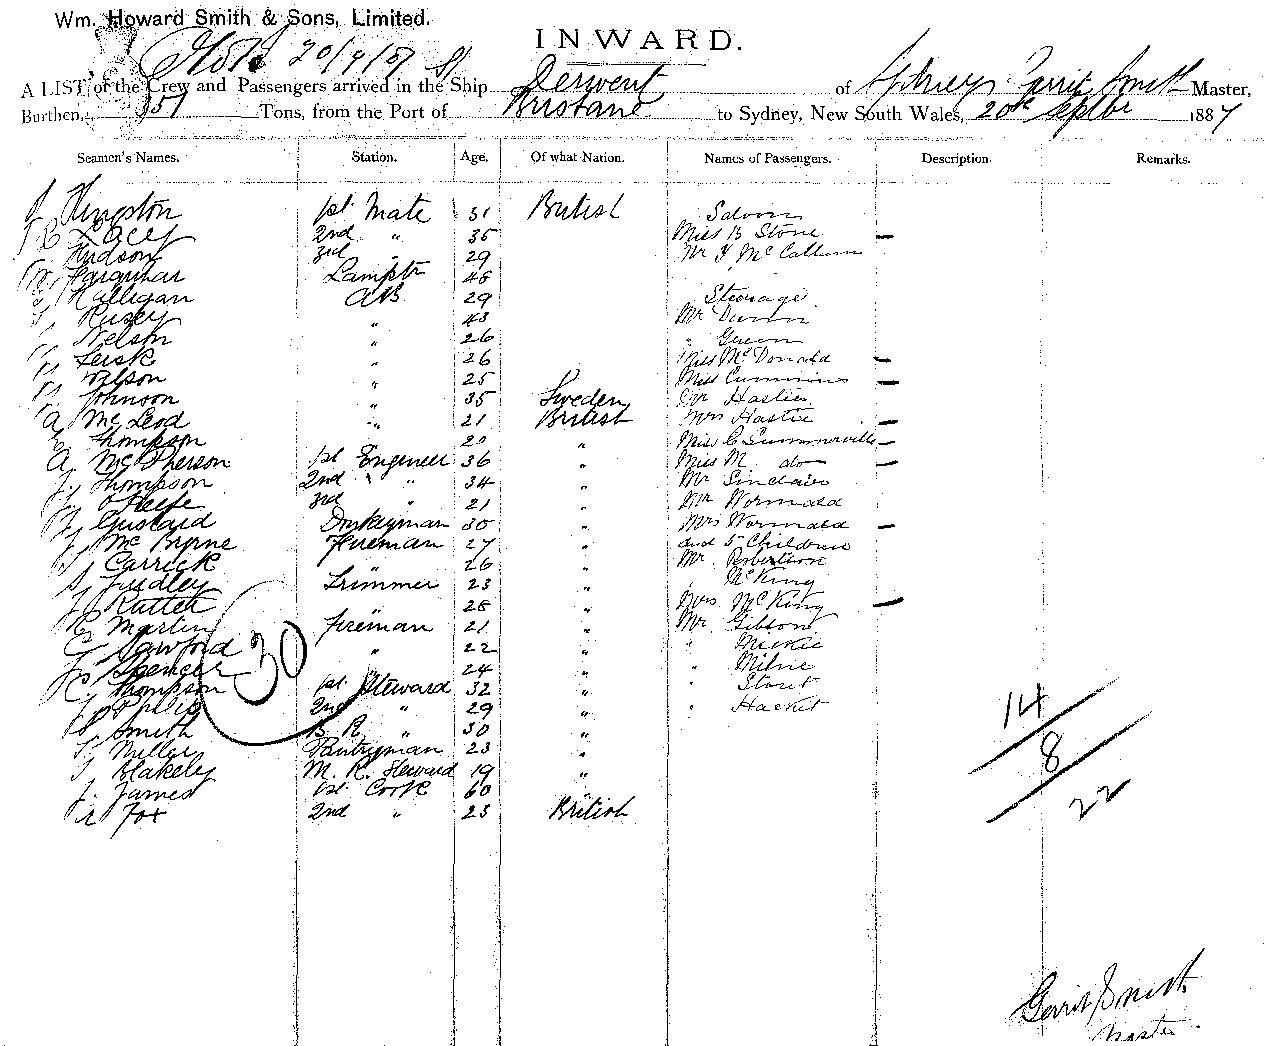 Wm. Howard Smith & Sons, Limited.
INWARD.
20/9/87
A LIST of the Crew and Passengers arrived in the Ship Derwent of Sydney Gerrit Smith Master,
Burthen, 351 Tons, from the Port of Brisbane to Sydney, New South Wales, 20th Septbr 1887
Seamen's Names. Station. Age. Of what Nation. Names of Passengers. Description. Remarks.
Kingston 1st Mate 31 British Saloon
Lacey 2nd " 35 Miss B Stone —
Hudson 3rd " 29 Mr McCallum
Farquhar Lamptr 48
Halligan AB 29 Steerage
" 43 Mr Dunn
Nelson " 26 " Green
Leisk " 26 Miss McDonald —
Wilson " 25 Miss Cummins —
Johnson " 35 Sweden Mr Hastie
A McLeod " 21 British Mrs Hastie —
Thompson 20 " Miss C Summerville —
A McPherson 1st Engineer 36 " Miss M do —
J Thompson 2nd " 34 " Mr Sinclair
O'Keefe 3rd " 21 " Mr Wormald
Gustard Donkeyman 30 " Mrs Wormald —
McByrne Fireman 27 " and 5 Children
Carrick 26 " Mr Robertson
Trimmer 23 " " McKing
Rutter 28 " Mrs McKing —
R Martin Fireman 21 " Mr Gibson
C Sawford " 22 " "
J Spencer " 24 " " Milne
Thompson 1st Steward 32 " " Stout
2nd " 29 " " Hacket
Smith B. R. " 30 "
Miller Pantryman 23 "
Blakely M. R. Steward 19 "
J. James 1st Cook 60 "
Fox 2nd " 23 British
30
14
8
22
Gerrit Smith
Master.